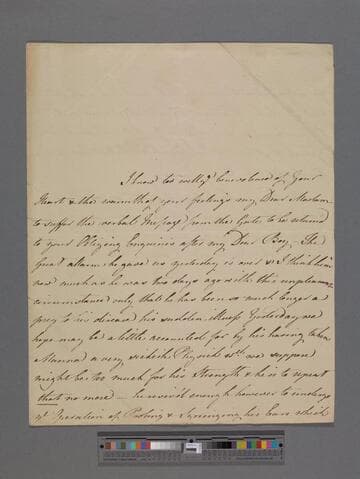 I know too well yᵉ benevolence of your
Heart & the warmth of your feelings my Dear Madam
to suffer the verbal Message from the Gate to be returned
to your Obliging Enquiries after my Dear Boy. The
Great alarm he gave us yesterday is over & I think him
now much as he was two days ago with this unpleasant
circumstance only that he has been so much longer a
prey to his disease his sudden Illness Yesterday we
hope may be a little accounted for by his having taken
a very Physick wᶜʰ we suppose
might be too much for his Strength & he is to repeat
that no more — he reviv'd enough however to undergo
yᵉ Operation of & Syringing his Ears which